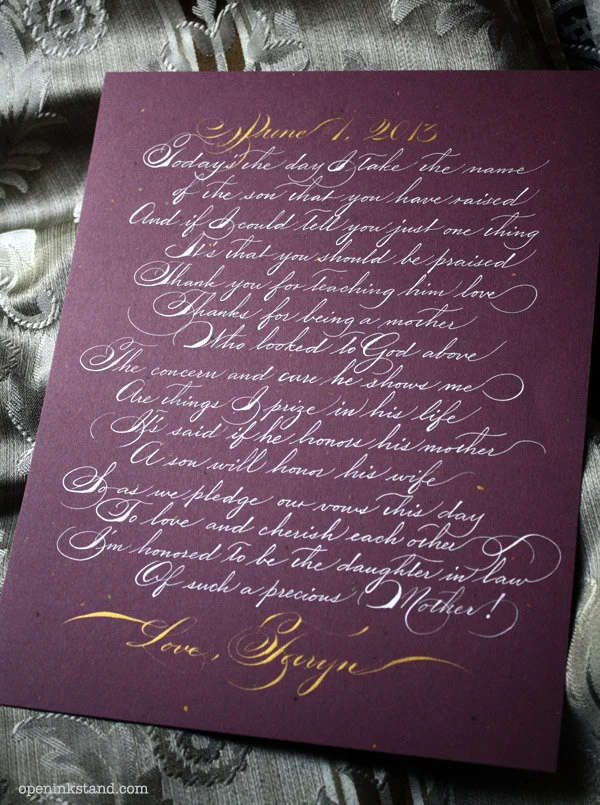 June 1, 2013
Today's the day I take the name
of the son that you have raised
And if I could tell you just one thing
It's that you should be praised
Thank you for teaching him love
Thanks for being a mother
Who looked to God above
The concern and care he shows me
Are things I prize in his life
It's said if he honors his mother
A son will honor his wife
So as we pledge our vows this day
To love and cherish each other
I'm honored to be the daughter in law
Of such a precious Mother!
Love, Taryn
openinkstand.com